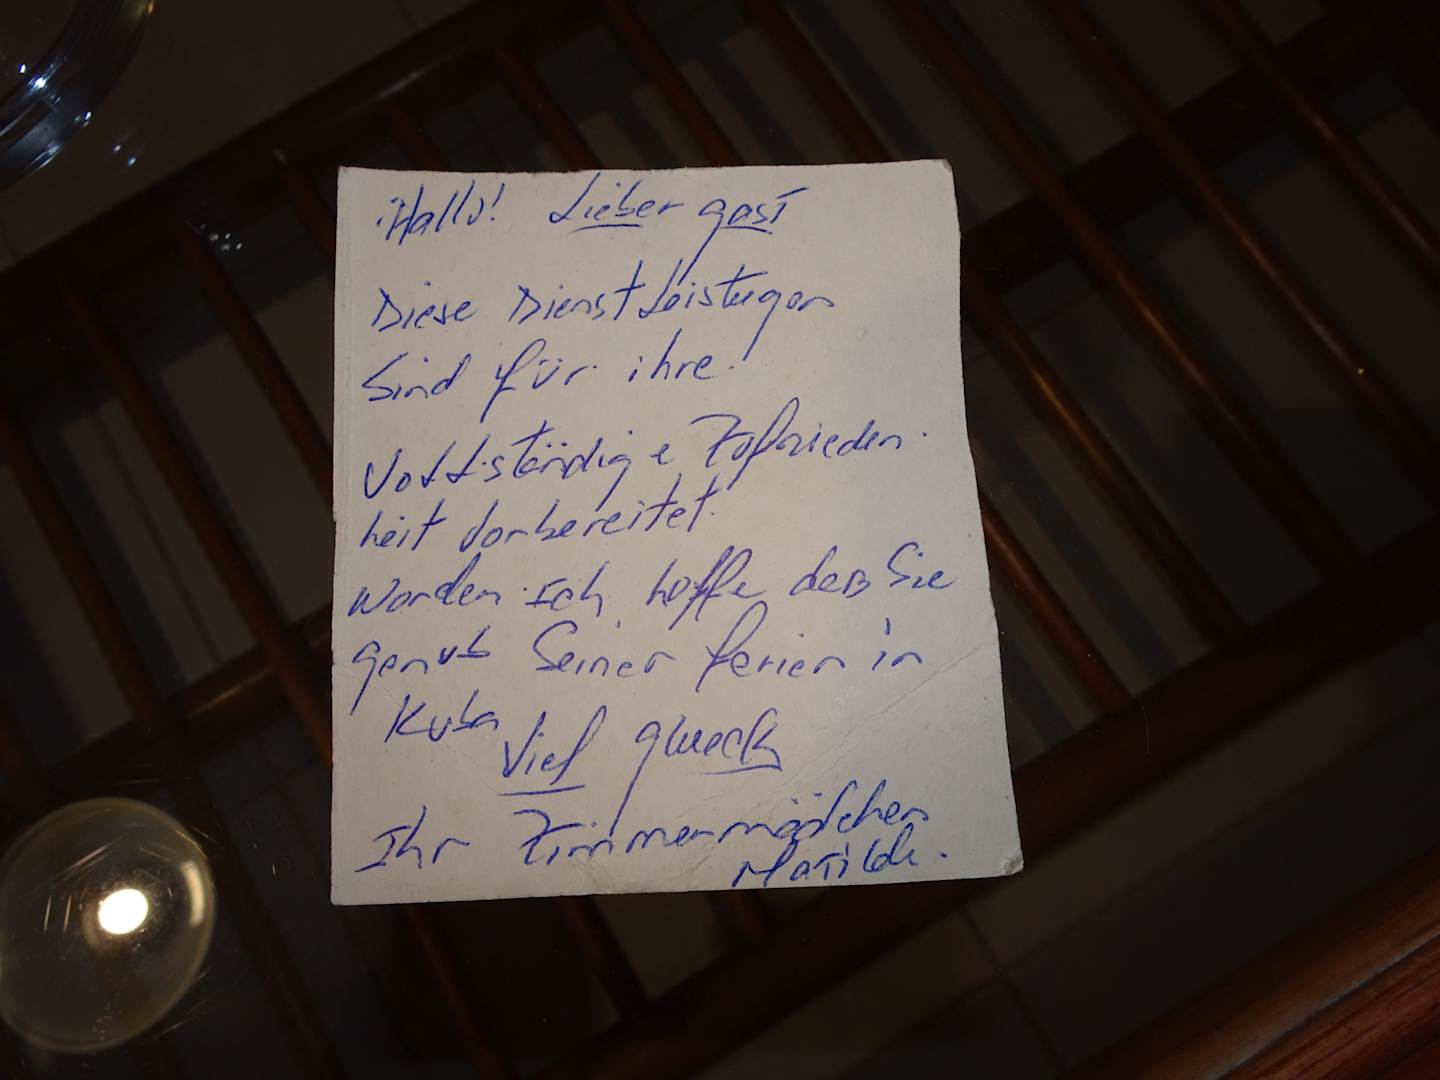 ¡Hallo! Lieber gast
Diese Dienstleistugen
Sind für ihre
Vollständige Zufrieden
heit vorbereitet
worden. Ich hoffe daß Sie
genub Seiner ferien in
Kuba
Viel glueck
Ihr Zimmermädchen
Matilde.